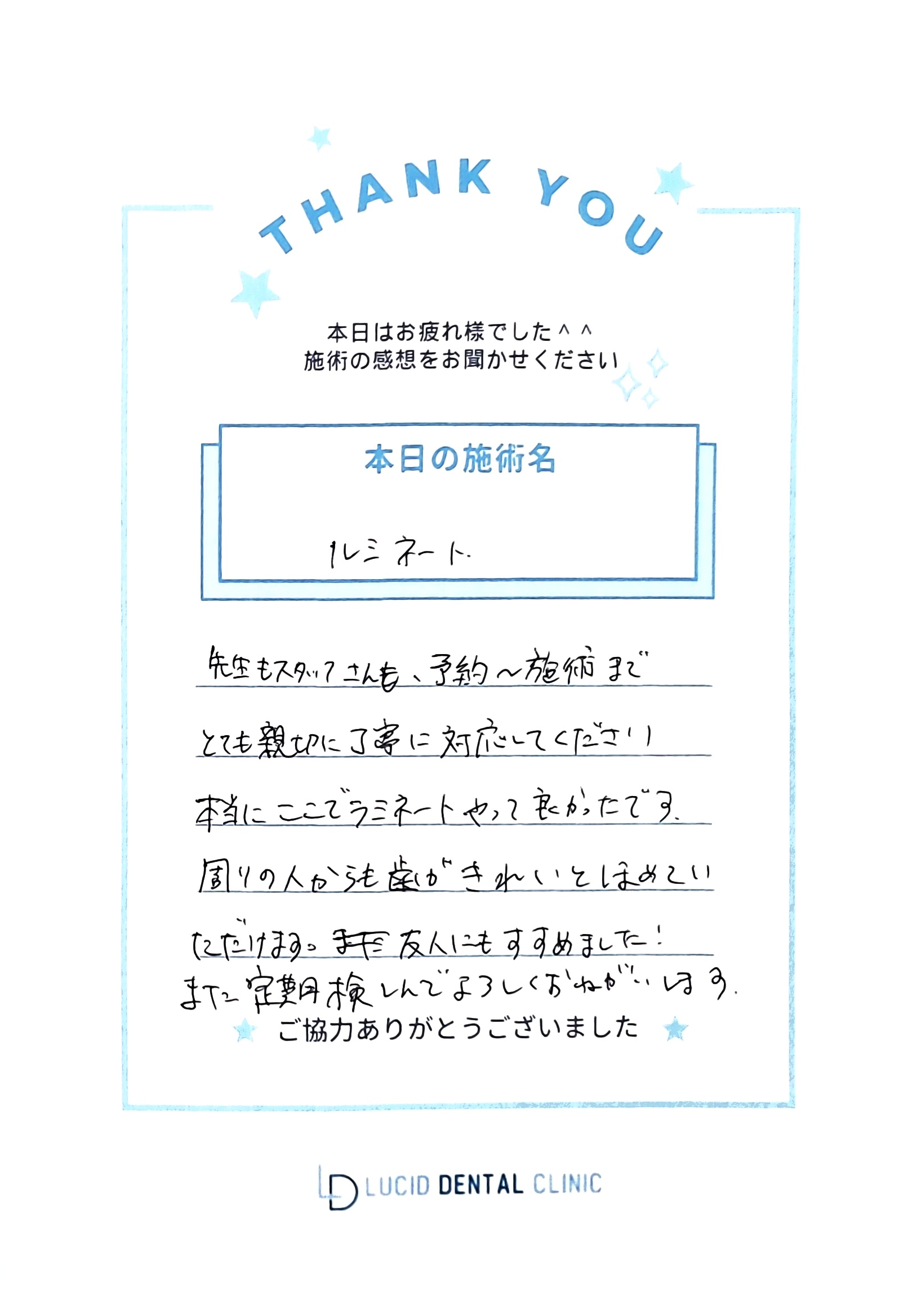 THANK YOU
本日はお疲れ様でした^ ^
施術の感想をお聞かせください
本日の施術名
ルミネート.
先生もスタッフさんも、予約〜施術まで
とても親切に丁寧に対応してください
本当にここでラミネートやって良かったです.
周りの人からも歯がきれいとほめてい
ただけます。 友人にもすすめました!
また定期検しんでよろしくおねがいします.
ご協力ありがとうございました
LD LUCID DENTAL CLINIC